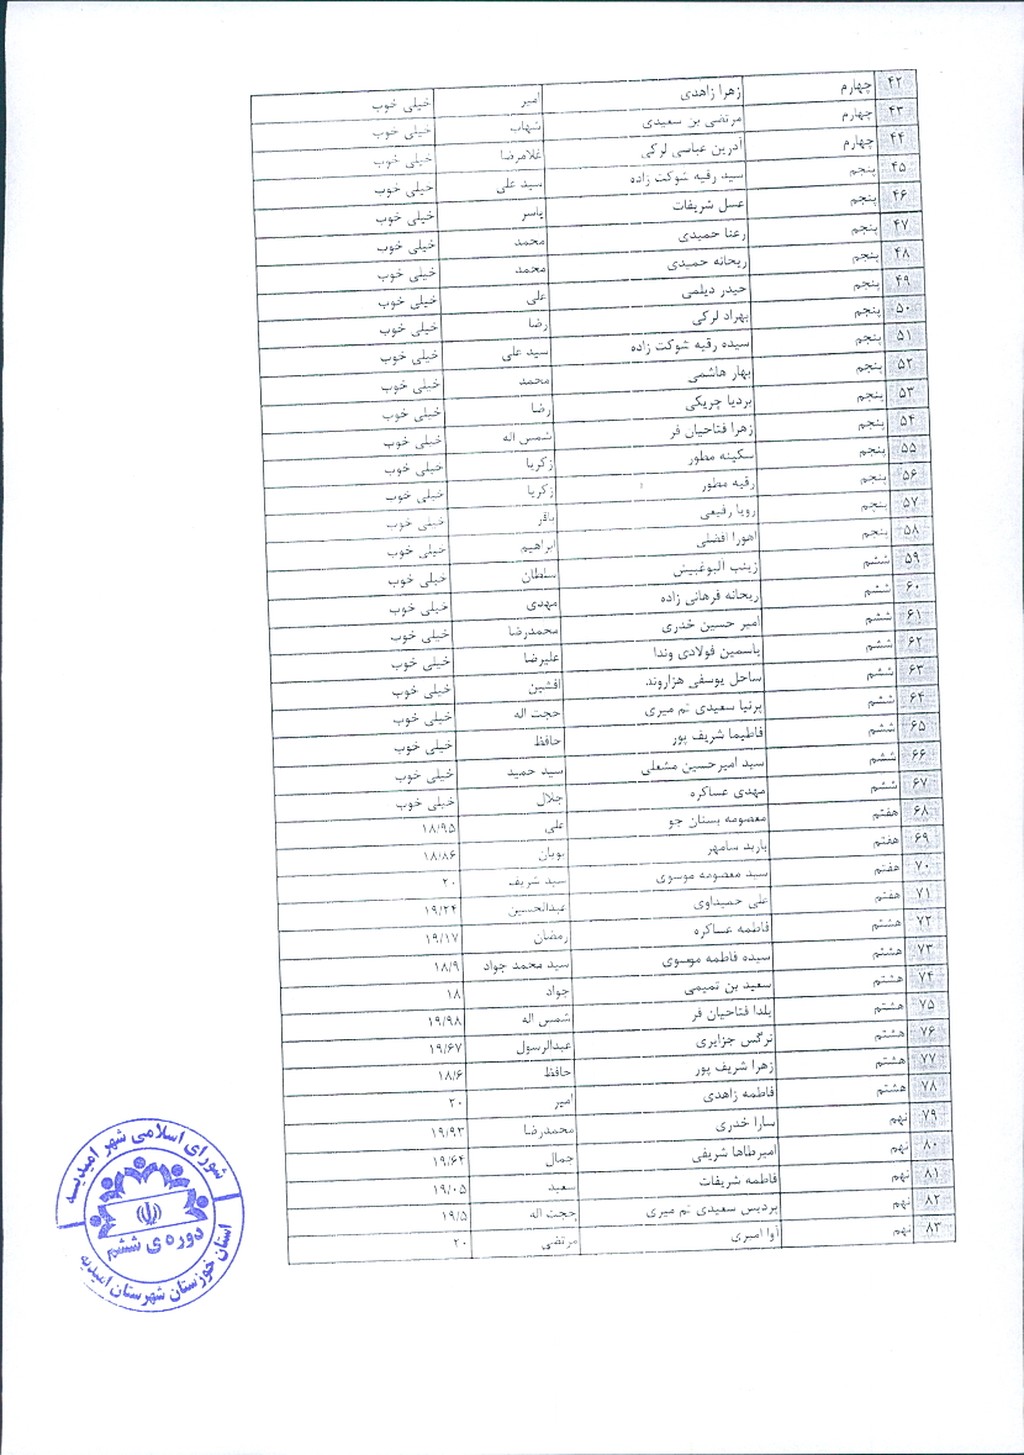 ۴۲ چهارم زهرا زاهدی امیر خیلی خوب
۴۳ چهارم مرتضی بن سعیدی شهاب خیلی خوب
۴۴ چهارم آدرین عباسی لرکی غلامرضا خیلی خوب
۴۵ پنجم سید رقیه شوکت زاده سید علی خیلی خوب
۴۶ پنجم عسل شریفات یاسر خیلی خوب
۴۷ پنجم رعنا حمیدی محمد خیلی خوب
۴۸ پنجم ریحانه حمیدی محمد خیلی خوب
۴۹ پنجم حیدر دیلمی علی خیلی خوب
۵۰ پنجم بهراد لرکی رضا خیلی خوب
۵۱ پنجم سیده رقیه شوکت زاده سید علی خیلی خوب
۵۲ پنجم بهار هاشمی محمد خیلی خوب
۵۳ پنجم بردیا چریکی رضا خیلی خوب
۵۴ پنجم زهرا فتاحیان فر شمس اله خیلی خوب
۵۵ پنجم سکینه مطور زکریا خیلی خوب
۵۶ پنجم رقیه مطور زکریا خیلی خوب
۵۷ پنجم رویا رفیعی باقر خیلی خوب
۵۸ پنجم اهورا افضلی ابراهیم خیلی خوب
۵۹ ششم زینب آلبوغبیش سلطان خیلی خوب
۶۰ ششم ریحانه فرهانی زاده مهدی خیلی خوب
۶۱ ششم امیر حسین خدری محمدرضا خیلی خوب
۶۲ ششم یاسمین فولادی وندا علیرضا خیلی خوب
۶۳ ششم ساحل یوسفی هزاروند افشین خیلی خوب
۶۴ ششم پرنیا سعیدی نم میری حجت اله خیلی خوب
۶۵ ششم فاطیما شریف پور حافظ خیلی خوب
۶۶ ششم سید امیرحسین مشعلی سید حمید خیلی خوب
۶۷ ششم مهدی عساکره جلال خیلی خوب
۶۸ هفتم معصومه بستان جو علی ۱۸/۹۵
۶۹ هفتم باربد سامهر پویان ۱۸/۸۶
۷۰ هفتم سید معصومه موسوی سید شریف ۲۰
۷۱ هفتم علی حمیداوی عبدالحسین ۱۹/۲۴
۷۲ هشتم فاطمه عساکره رمضان ۱۹/۱۷
۷۳ هشتم سیده فاطمه موسوی سید محمد جواد ۱۸/۹
۷۴ هشتم سعید بن تمیمی جواد ۱۸
۷۵ هشتم یلدا فتاحیان فر شمس اله ۱۹/۹۸
۷۶ هشتم نرگس جزایری عبدالرسول ۱۹/۶۷
۷۷ هشتم زهرا شریف پور حافظ ۱۸/۶
۷۸ هشتم فاطمه زاهدی امیر ۲۰
۷۹ نهم سارا خدری محمدرضا ۱۹/۹۳
۸۰ نهم امیرطاها شریفی جمال ۱۹/۶۴
۸۱ نهم فاطمه شریفات سعید ۱۹/۰۵
۸۲ نهم پردیس سعیدی نم میری حجت اله ۱۹/۵
۸۳ نهم آوا امیری مرتضی ۲۰
شورای اسلامی شهر امیدیه
دوره ی ششم
استان خوزستان شهرستان امیدیه